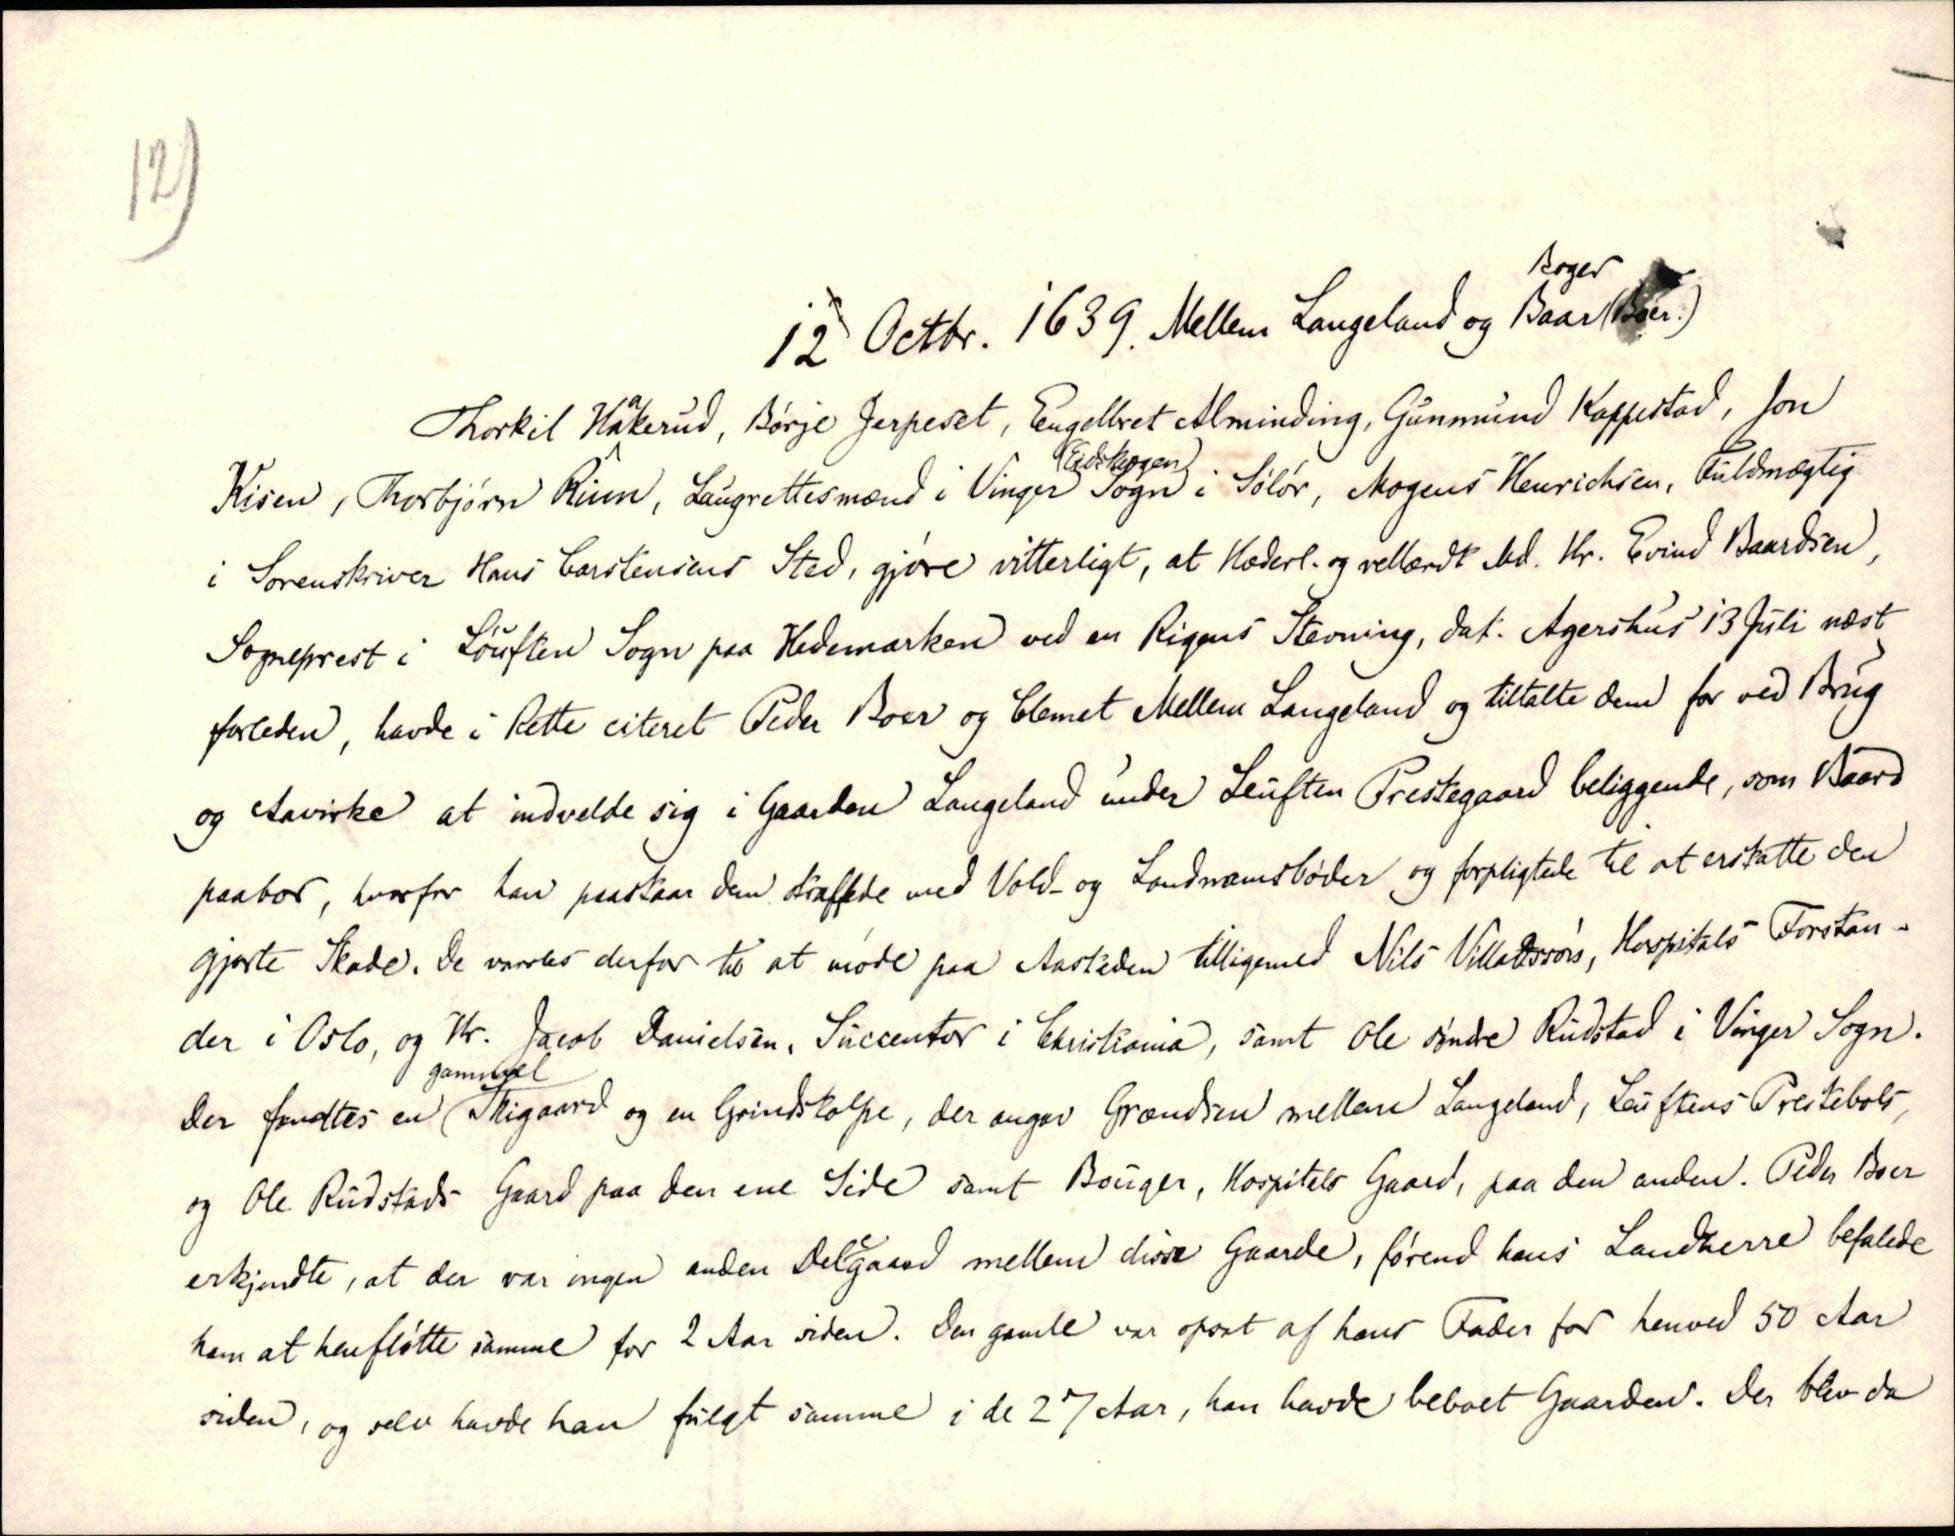 12)
Boger
12 Octbr. 1639. Mellem Langeland og Baar (Boer.)
Thorkil Håkerud, Børje Jerpeset, Engelbret Alminding, Gunmund Kappestad, Jon
(Eidskogen)
Kisen, Thorbjørn Rinn, Laugrettesmænd i Vinger Sogn i Solør, Mogens Henrichsen, Fuldmægtig
i Sorenskriver Hans Carstensens Sted, gjøre vitterligt, at Hæderl. og vellærdt Md. Hr. Evind Baardsen,
Sogneprest i Løuften Sogn paa Hedemarken ved en Rigens Stevning, dat. Agershus 13 Juli næst
forleden, havde i Rette citeret Peder Boer og Clemet Mellem Langeland og tiltalte dem for ved Brug
og Aavirke at indvelde sig i Gaarden Langeland under Leuften Prestegaard beliggende, som Baard
paabor, hvorfor han paastaar dem straffede med Vold- og Landnamsbøder og forpligtede til at erstatte den
gjorte Skade. De varsles derfor til at møde paa Aasteden tilligemed Nils Villadssøn, Hospitals Forstan-
der i Oslo, og Hr. Jacob Danielsen, Succentor i Christiania, samt Ole søndre Rudstad i Vinger Sogn.
gammel
Der fandtes en Skigaard og en Grindstolpe, der angav Grændsen mellem Langeland, Leuftens Prestebols,
og Ole Rudstads Gaard paa den ene Side samt Bouger, Hospitals Gaard, paa den anden. Peder Boer
erkjendte, at der var ingen anden Delegaard mellem disse Gaarde, førend hans Landherre befalede
ham at henfløtte samme for 2 Aar siden. Den gamle var opsat af hans Fader for henved 50 Aar
siden, og selv havde han fulgt samme i de 27 Aar, han havde beboet Gaarden. Der blev da